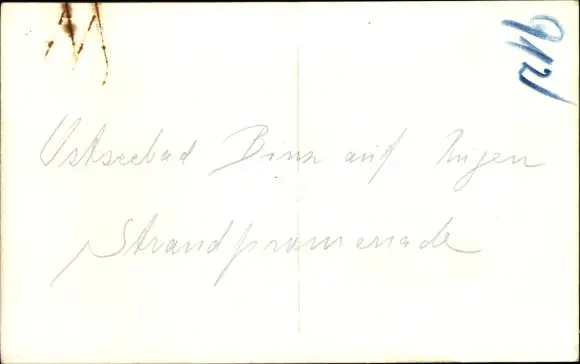 Ostseebad Binz auf Rügen
Strandpromenade